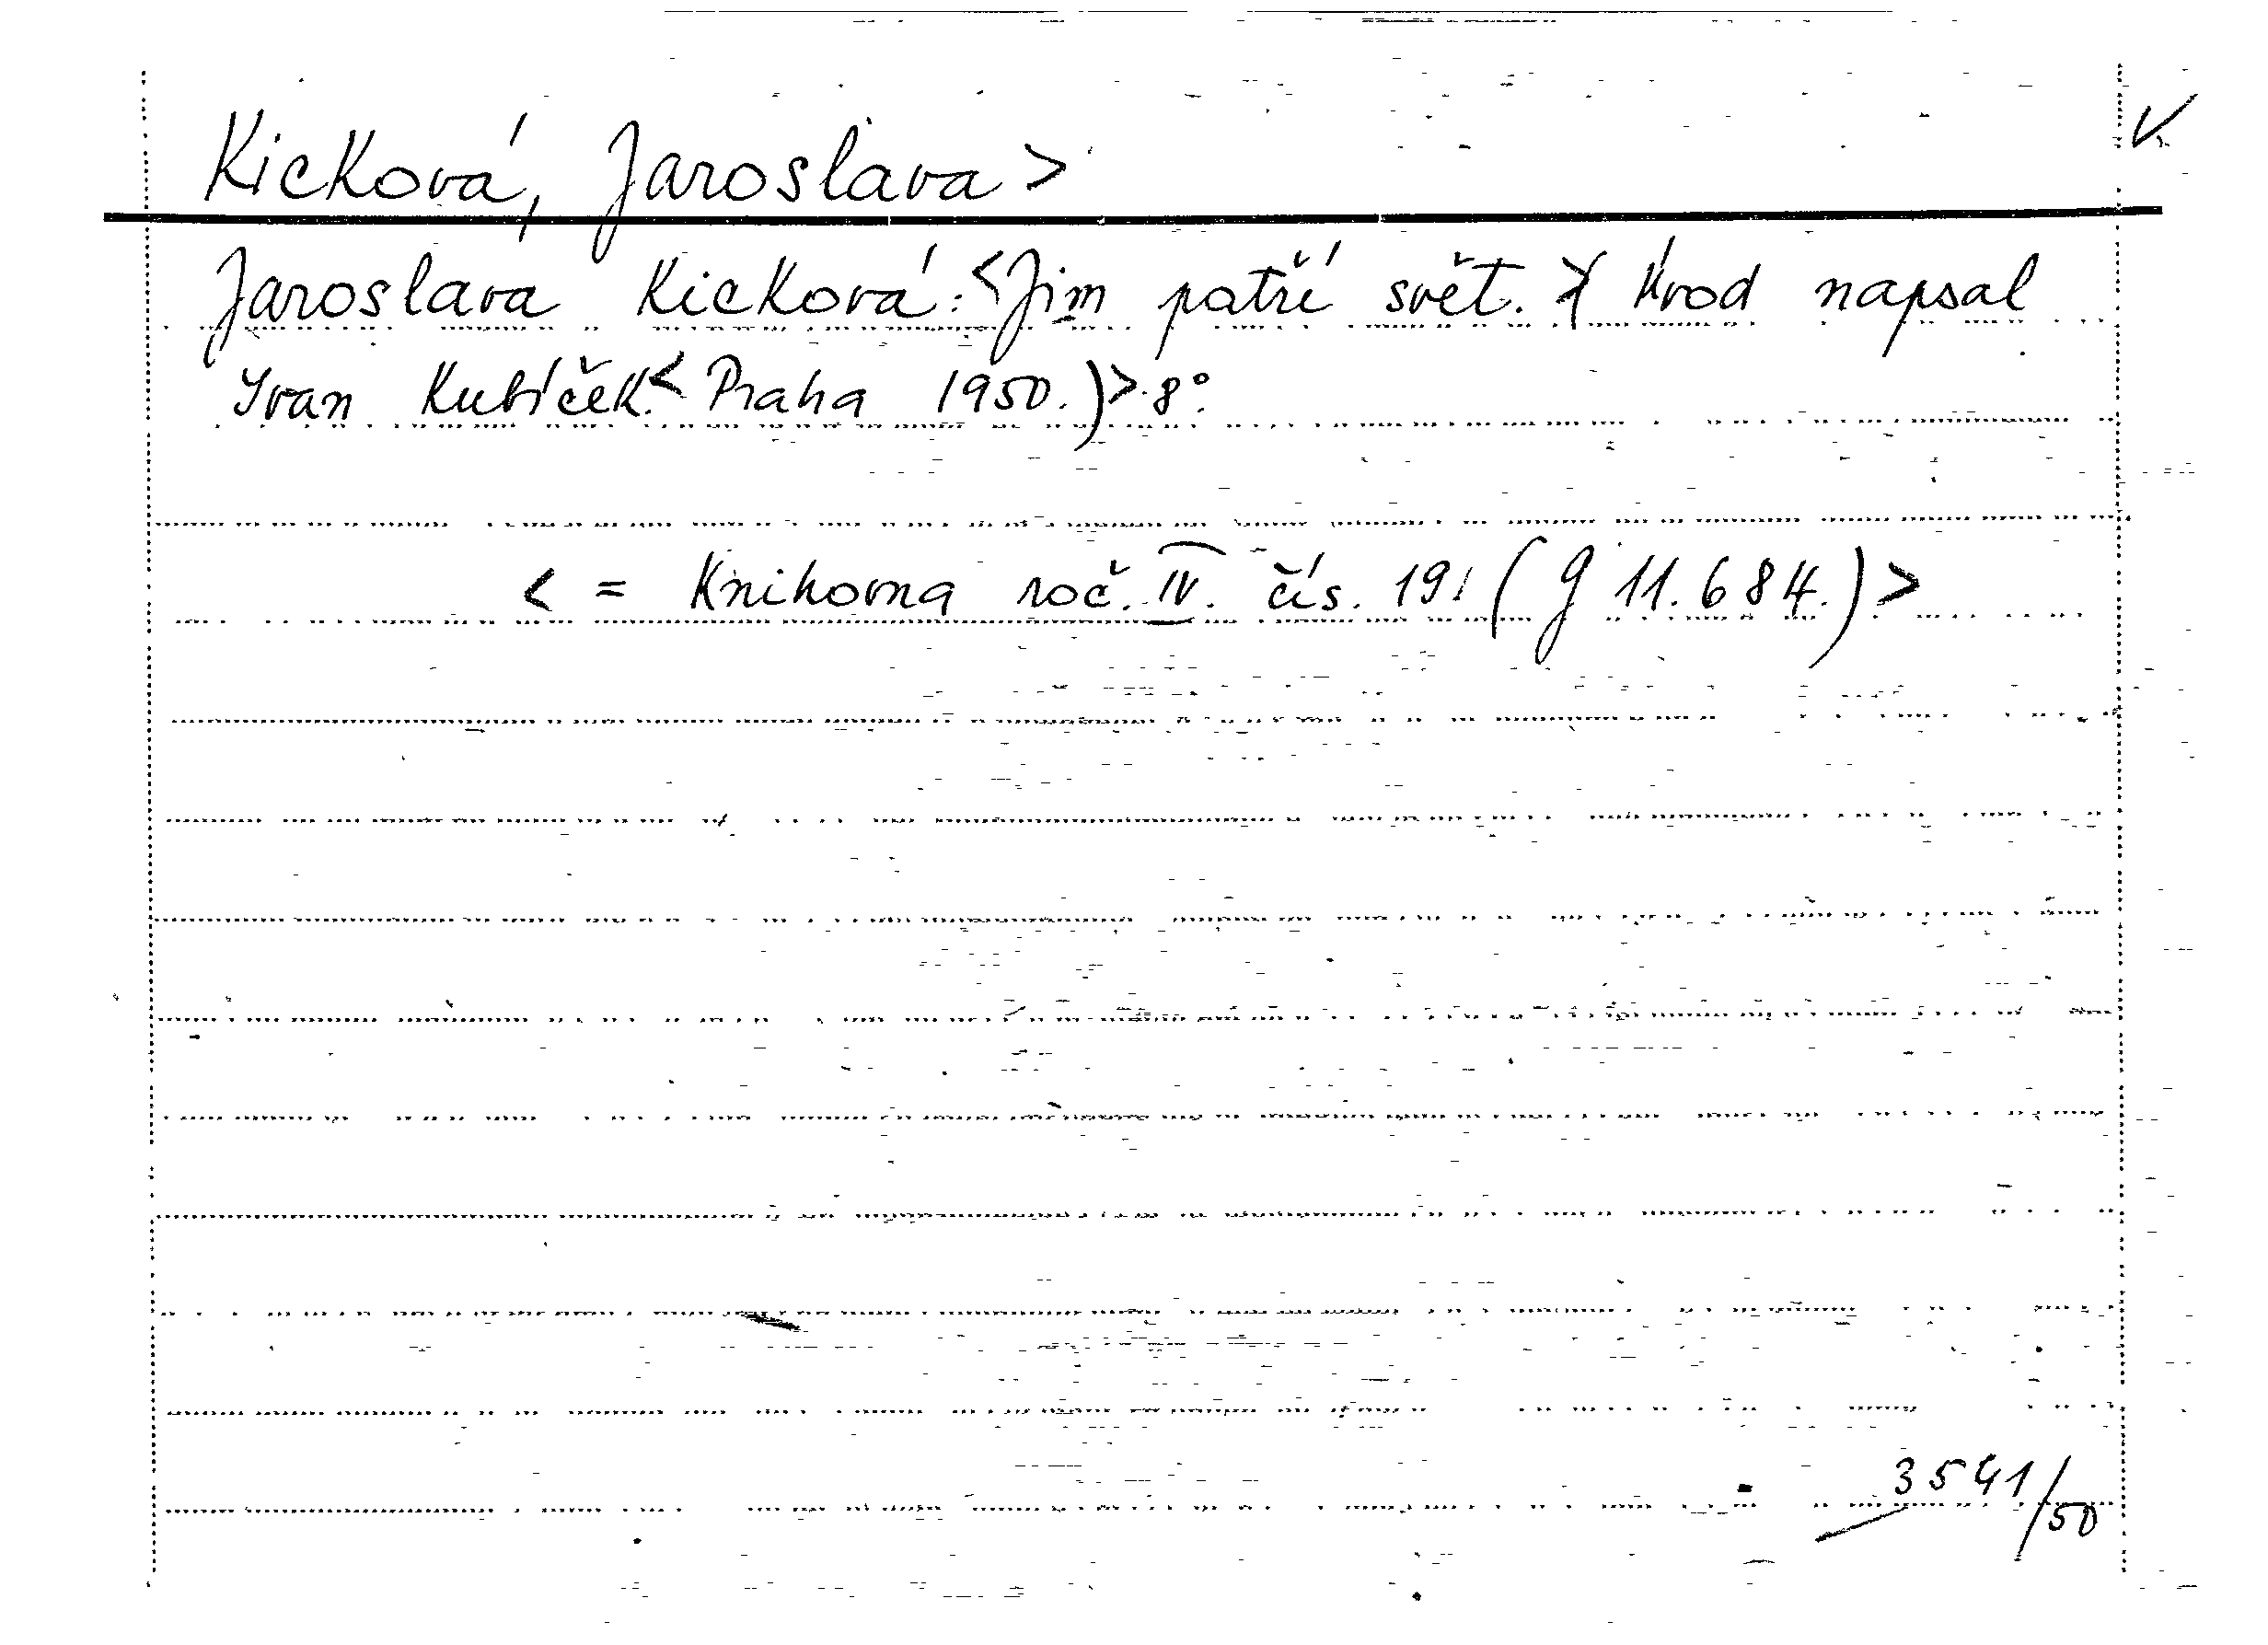 V.
Kicková, Jaroslava >
Jaroslava Kicková: <Jim patří svět. >( Úvod napsal
Ivan Kubíček.< Praha 1950.)> 8°.
< = Knihovna roč. IV. čís. 19! (J 11.684.) >
3541/50